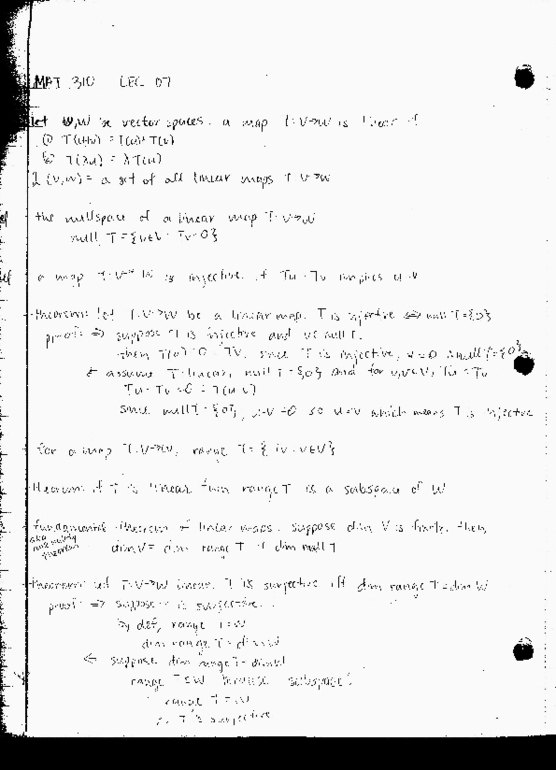 MAT 310 LEC 07
let V,W be vector spaces. a map T: V→W is linear if
① T(u+v) = T(u) + T(v)
② T(λu) = λ T(u)
L(V,W) = a set of all linear maps T V→W
def the nullspace of a linear map T: V→W
null T = {v∈V : Tv=0}
def a map T: V→W is injective if Tu=Tv implies u=v
theorem: let T: V→W be a linear map. T is injective ⇔ null T={0}
proof: ⇒ suppose T is injective and v∈ null T.
then T(0)=0=Tv. since T is injective, v=0 ∴ null T={0}
⇐ assume T linear, null T={0} and for u,v∈V, Tu=Tv
Tu-Tv=0=T(u-v)
since null T={0}, u-v=0 so u=v which means T is injective
for a map T: V→W, range T= {Tv : v∈V}
theorem: if T is linear then range T is a subspace of W
fundamental theorem of linear maps. suppose dim V is finite. then,
aka rank nullity theorem
dim V = dim range T + dim null T
theorem: let T: V→W linear. T is surjective iff dim range T = dim W
proof: ⇒ suppose T is surjective.
by def, range T=W
dim range T = dim W
⇐ suppose dim range T = dim W
range T ⊆ W because subspace
range T = W
∴ T is surjective